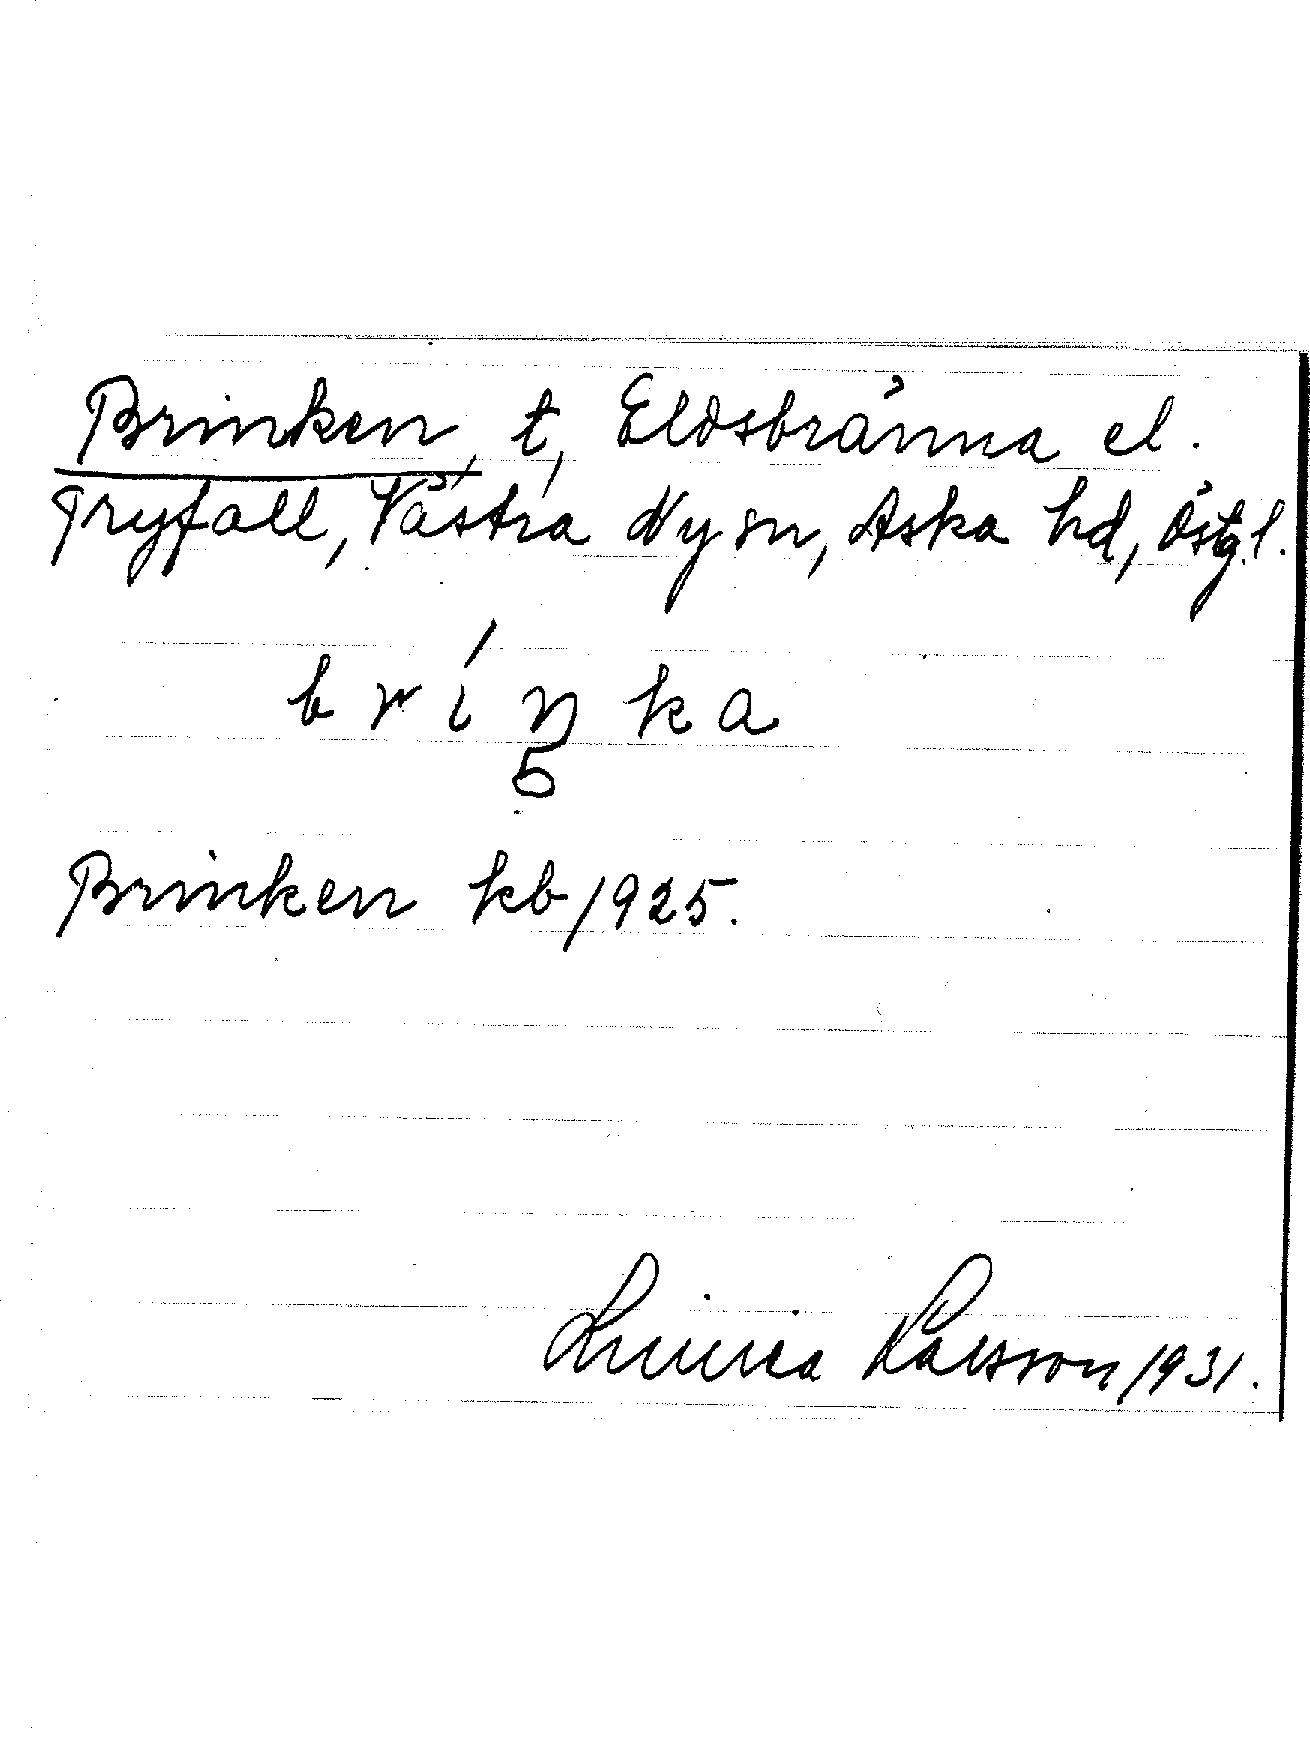 Brinken, t, Eldsbränna el.
Tryfall, Västra Ny sn, Aska hd, Östg.l.
b r í ŋ k a
Brinken kb 1925.
Linnea Larsson 1931.